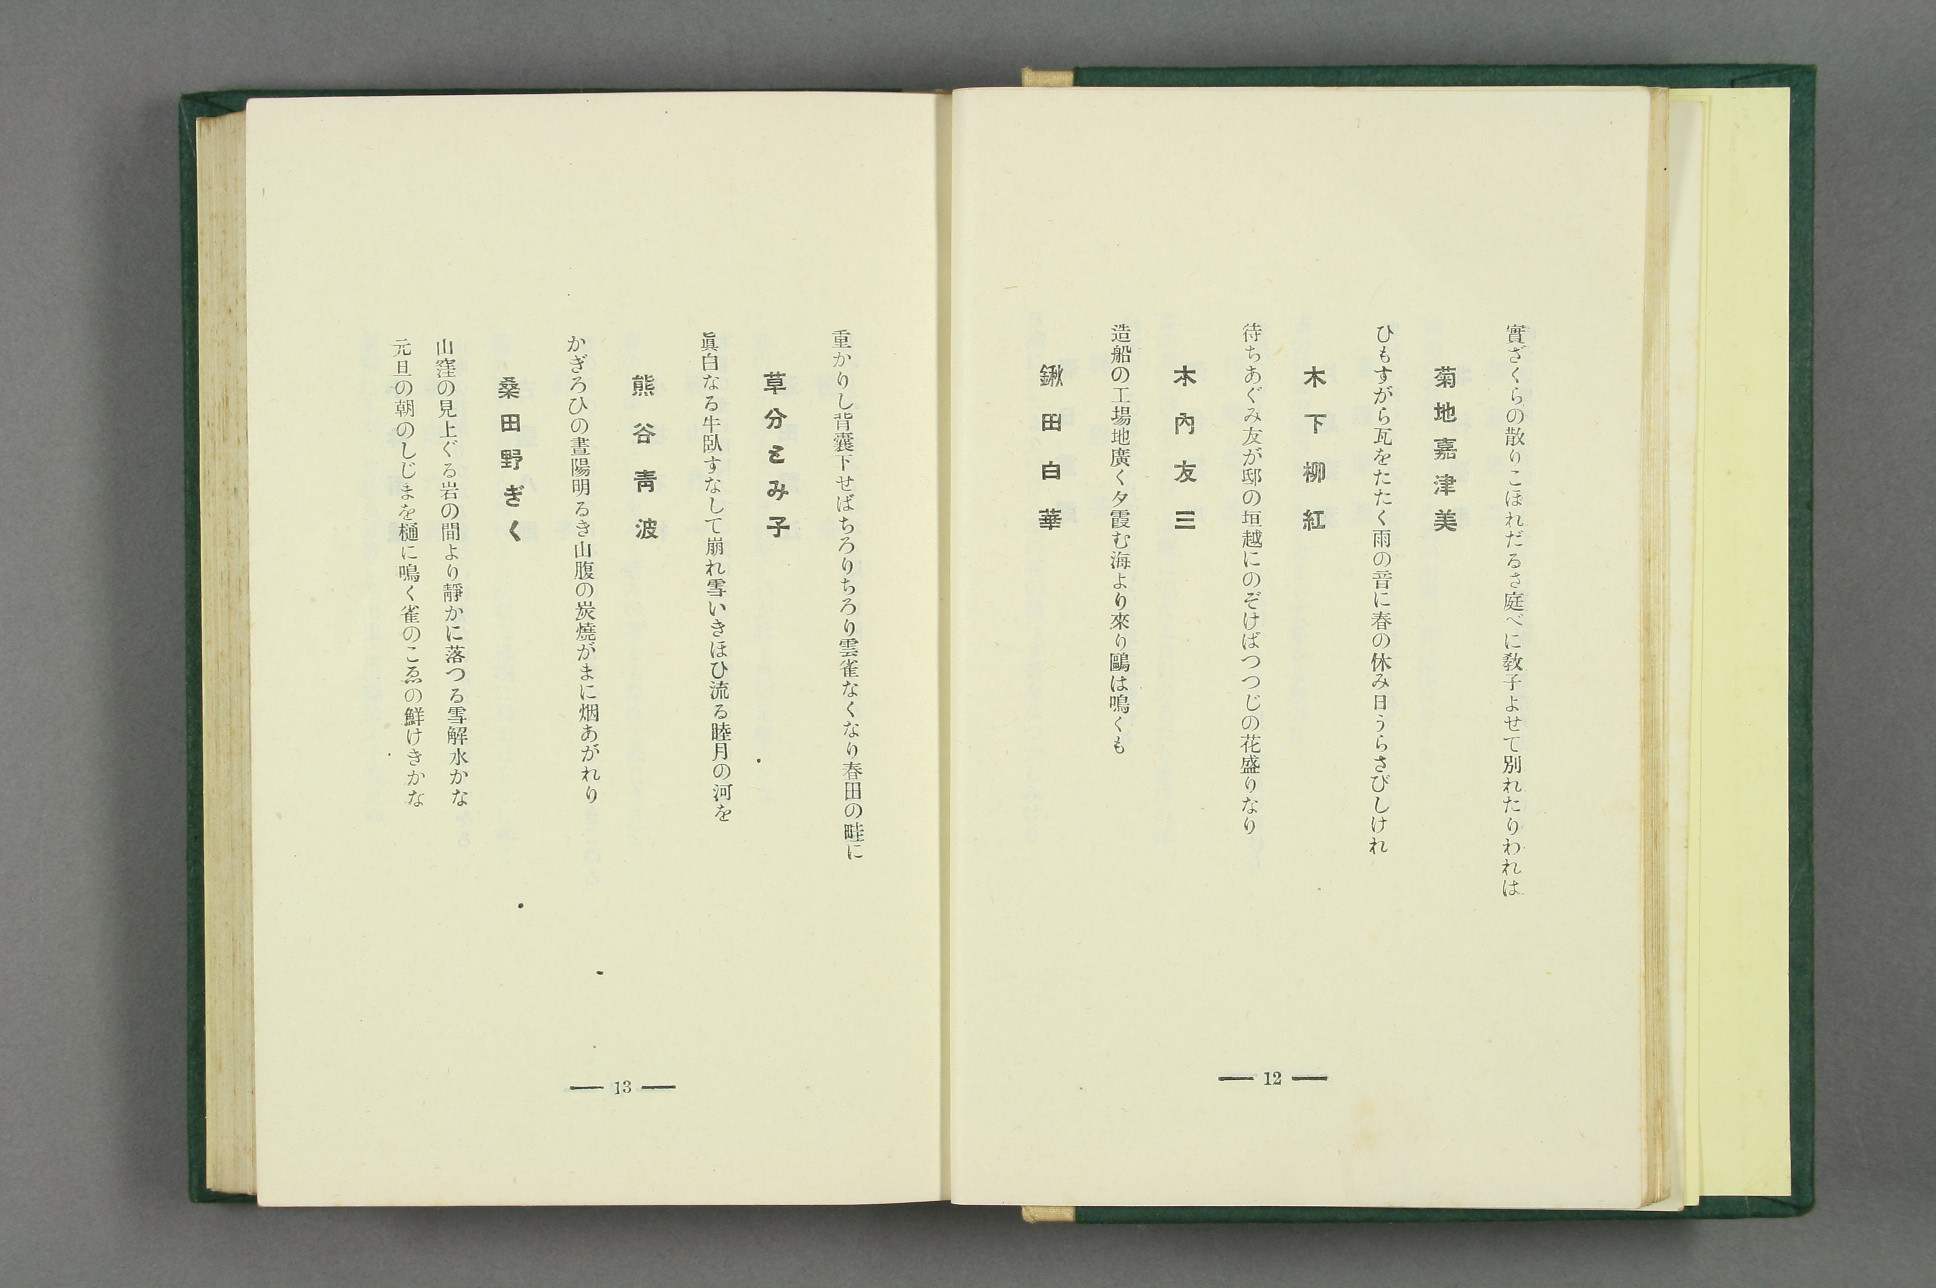 實ざくらの散りこほれだるさ庭べに敎子よせて別れたりわれは
菊地嘉津美
ひもすがら瓦をたたく雨の音に春の休み日うらさびしけれ
木下柳紅
待ちあぐみ友が邸の垣越にのぞけばつつじの花盛りなり
木內友三
造船の工場地廣く夕霞む海より來り鷗は鳴くも
鍬田白華
— 12 —
重かりし背囊下せばちろりちろり雲雀なくなり春田の畦に
草分とみ子
眞白なる牛臥すなして崩れ雪いきほひ流る睦月の河を
熊谷靑波
かぎろひの晝陽明るき山腹の炭燒がまに烟あがれり
桑田野ぎく
山窪の見上ぐる岩の間より靜かに落つる雪解水かな
元旦の朝のしじまを樋に鳴く雀のこゑの鮮けきかな
— 13 —